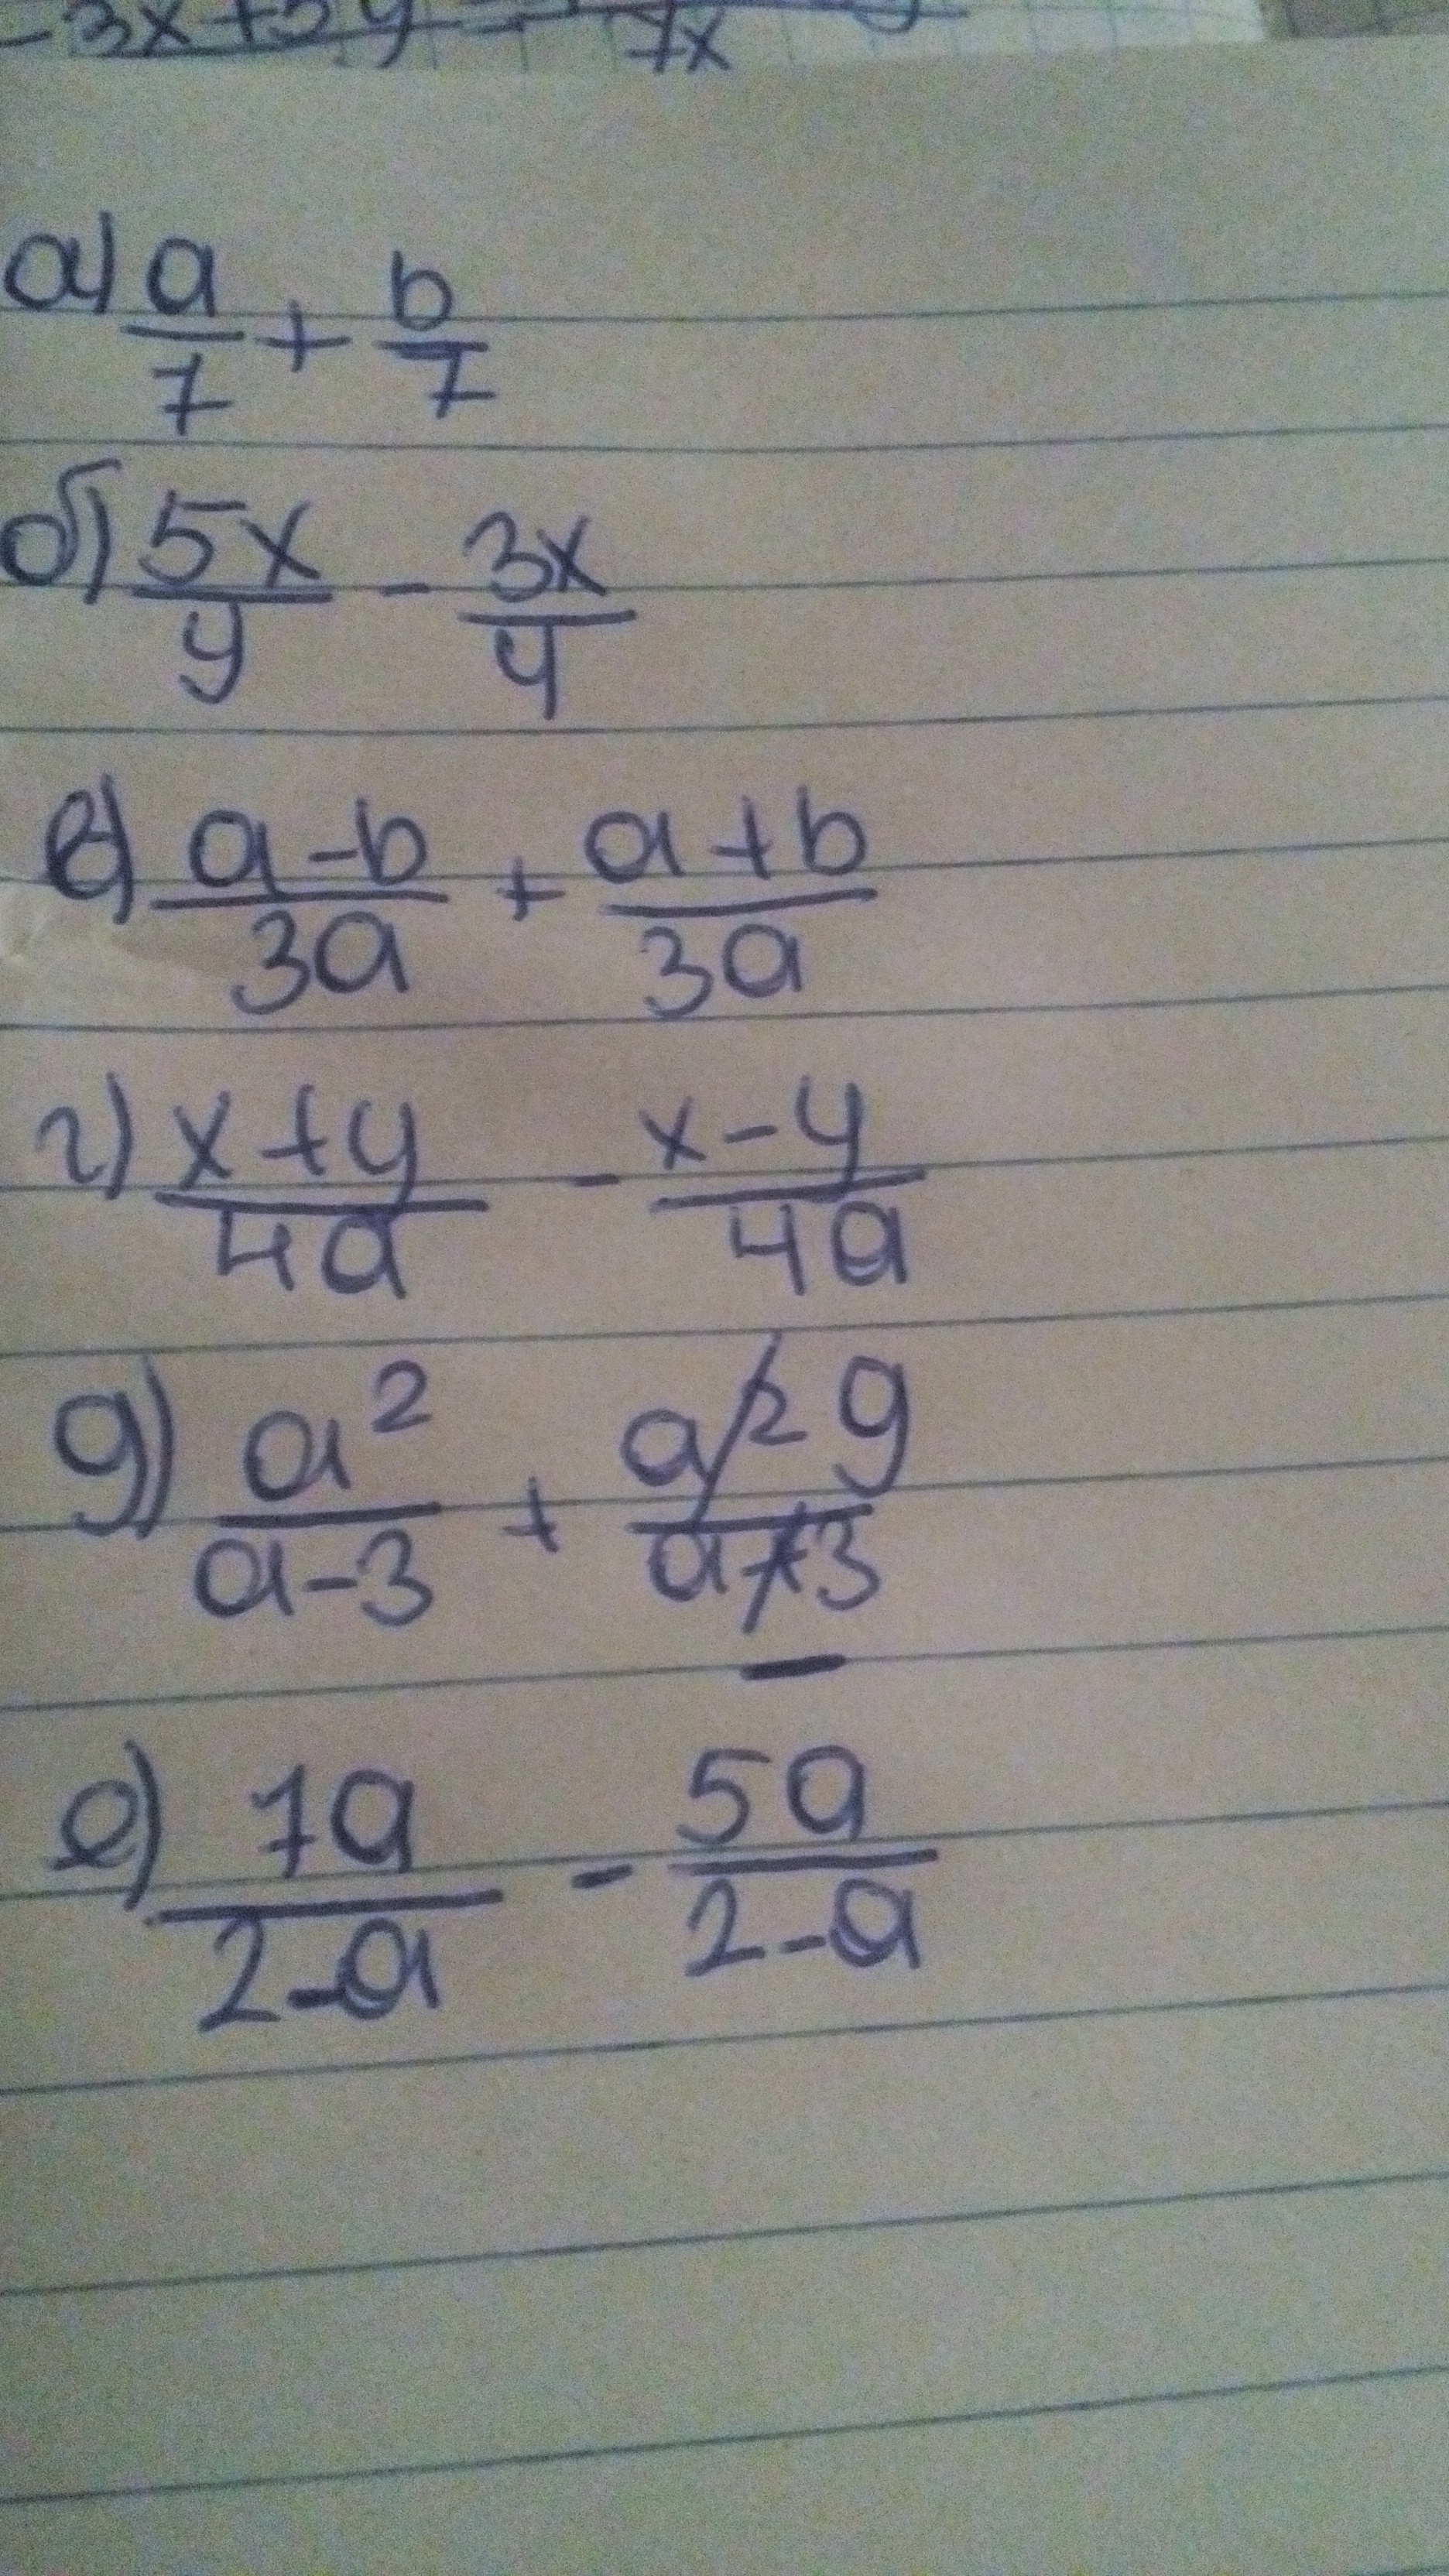 -3x+5y =
7x
а) a/7 + b/7
б) 5x/y - 3x/y
в) a-b/3a + a+b/3a
г) x+y/4a - x-y/4a
д) a²/a-3 + 9/a-3
е) 7a/2-a - 5a/2-a